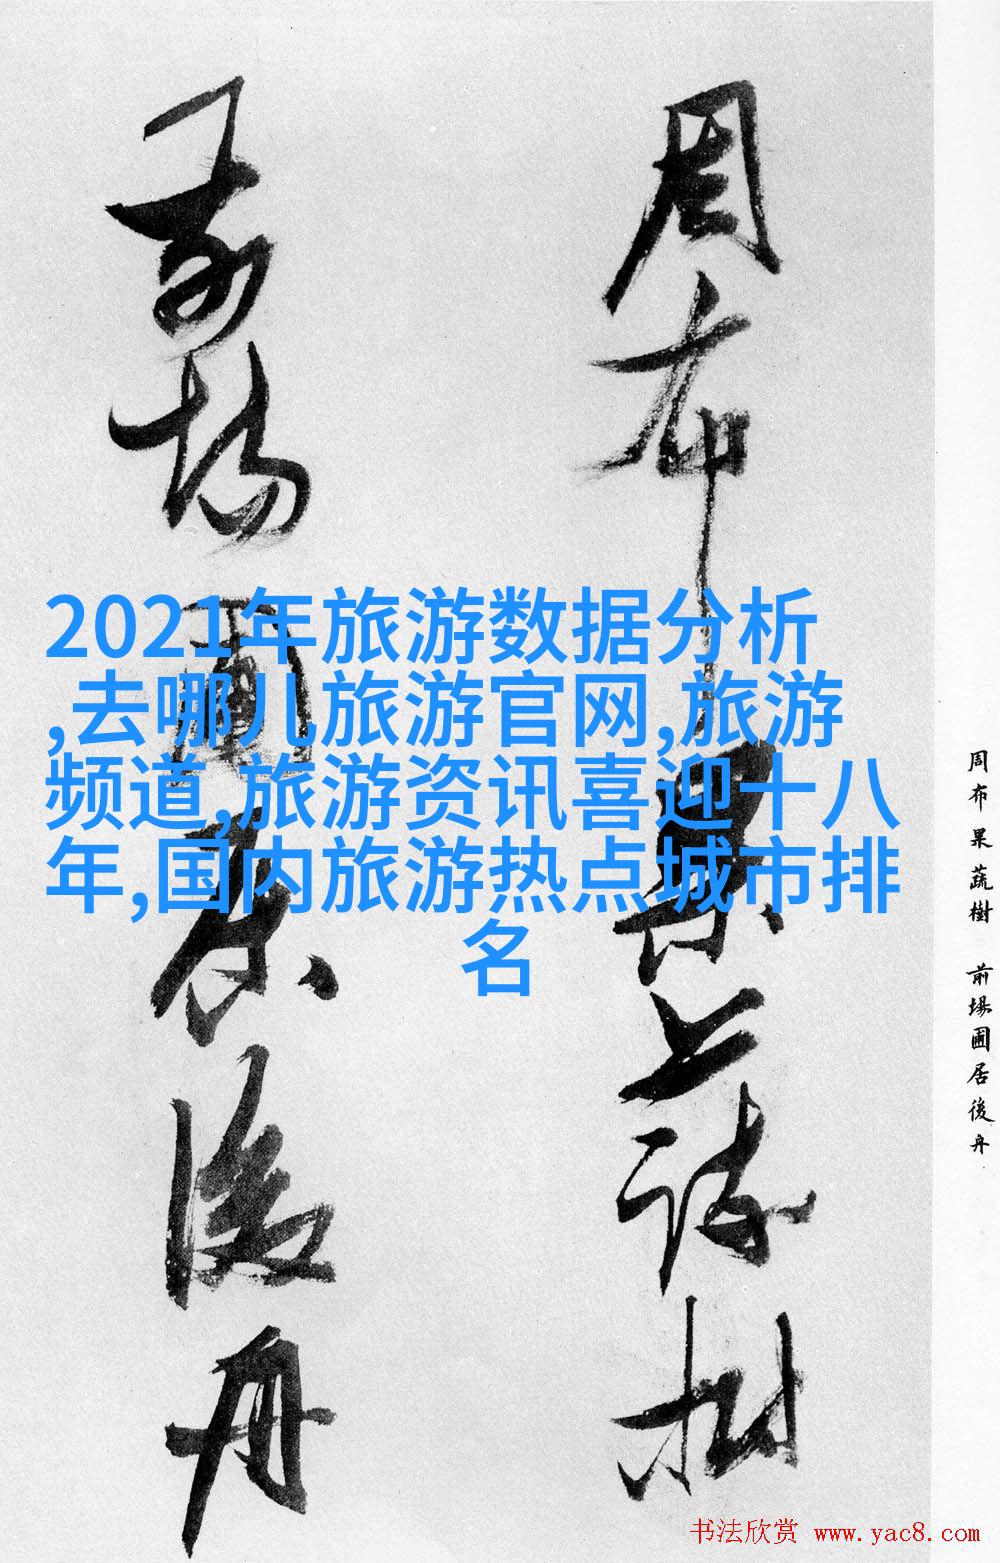 周布果蔬樹
前場圃居後舟
2021年旅游数据分析
,去哪儿旅游官网,旅游
频道,旅游资讯喜迎十八
年,国内旅游热点城市排
名
周布果蔬樹 前場圃居後舟
书法欣赏 www.yac8.com